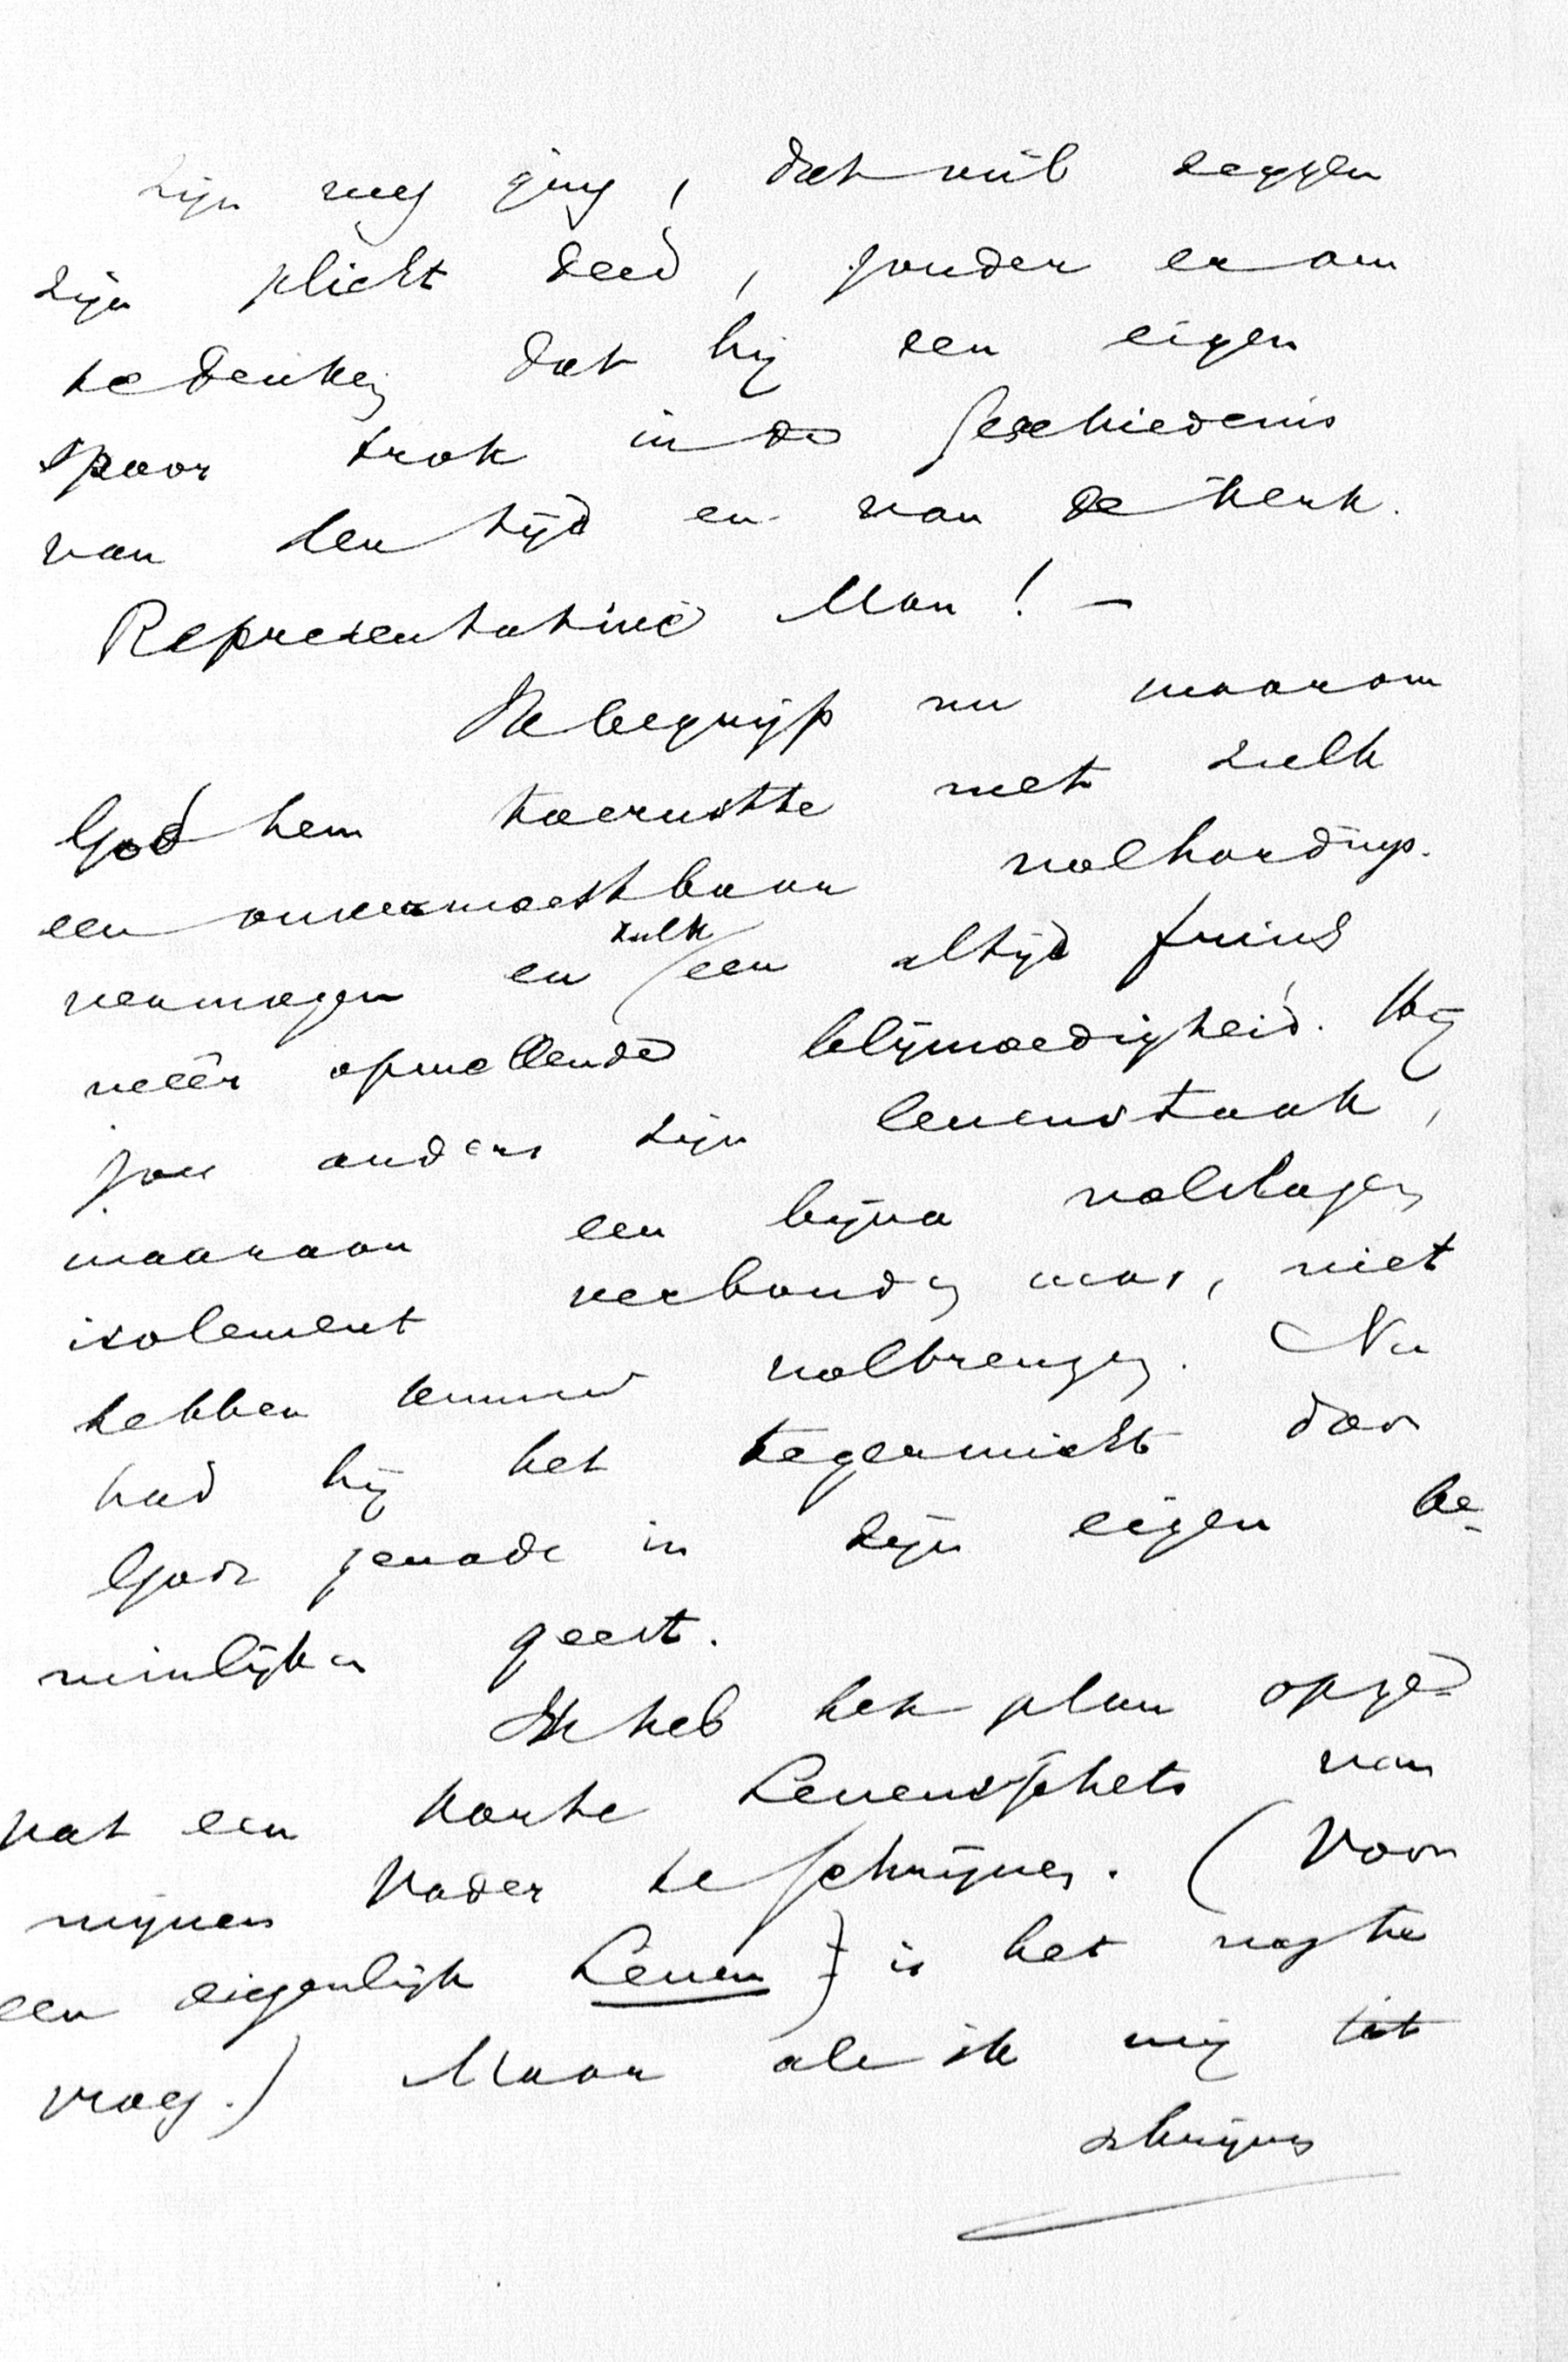 zijn weg ging, dat wil zeggen
zijn plicht deed, zonder er om
te denken dat hij een eigen
spoor trok in de Geschiedenis
van den tijd en van de kerk.
Representative Man! —
Ik begrijp nu waarom
God hem toerustte met zulk
een onvermoeibaar volhardings-
vermogen en zulk een altijd frisch
weêr opwellende blijmoedigheid. Hij
zou anders zijn levenstaak,
waaraan een bijna volslagen
isolement verbonden was, niet
hebben kunnen volbrengen. Nu
had hij het tegenwicht door
Gods genade in zijn eigen be-
minlijken geest.
Ik heb het plan opge-
vat een korte Levensschets van
mijnen Vader te schrijven. (Voor
een eigenlijk Leven is het nog te
vroeg.) Maar als ik mij tot
schrijven